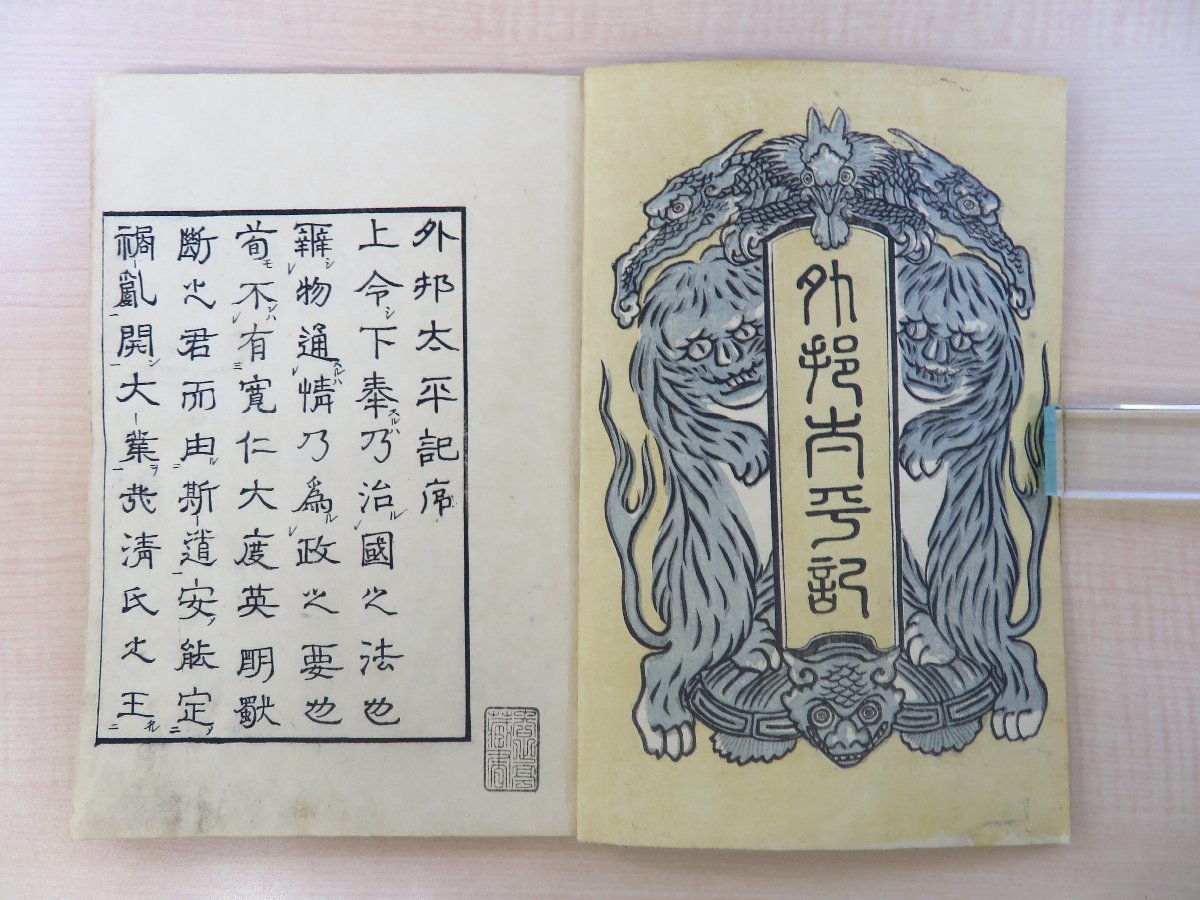 外邦太平記
外邦太平記序
上令下奉乃治國之法也
辨物通情乃爲政之要也
苟不有寬仁大度英明
斷之君而由斯道安能定
禍亂開大業哉清氏之王